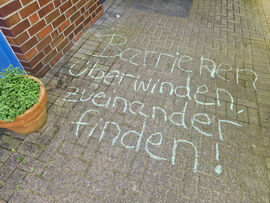 Barrieren
überwinden,
zueinander
finden!